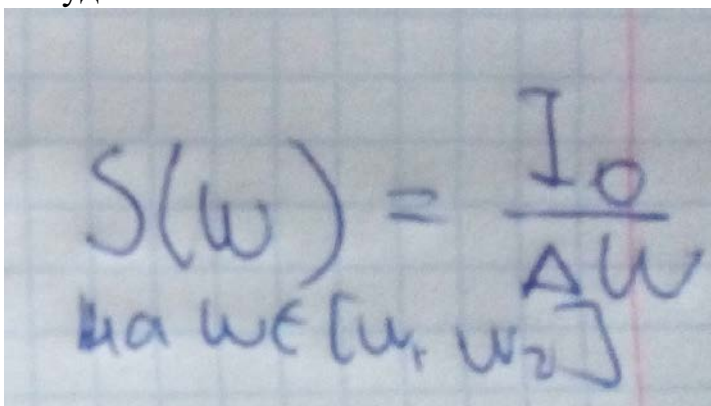 S(ω) = I₀/Δω
на ω∈[ω₁ ω₂]